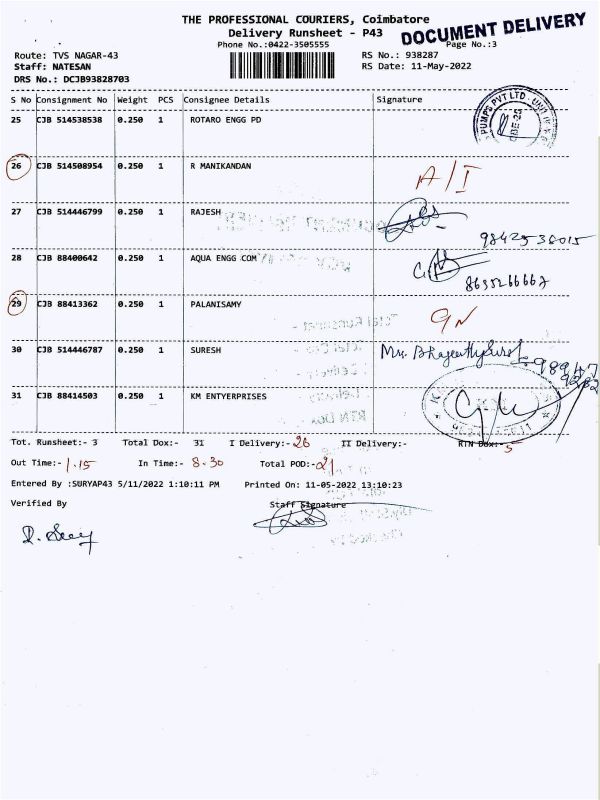 THE PROFESSIONAL COURIERS, Coimbatore
Delivery Runsheet - P43
DOCUMENT DELIVERY
Phone No.:0422-3505555
Page No.:3
Route: TVS NAGAR-43
RS No.: 938287
Staff: NATESAN
RS Date: 11-May-2022
DRS No.: DCJB93828703
S No Consignment No Weight PCS Consignee Details Signature
PUMPS PVT LTD. UNIT
CBE-25
25 CJB 514538538 0.250 1 ROTARO ENGG PD
26 CJB 514508954 0.250 1 R MANIKANDAN A/I
27 CJB 514446799 0.250 1 RAJESH
9842536015
28 CJB 88400642 0.250 1 AQUA ENGG COM
29 CJB 88413362 0.250 1 PALANISAMY
30 CJB 514446787 0.250 1 SURESH
31 CJB 88414503 0.250 1 KM ENTYERPRISES
Tot. Runsheet:- 3 Total Dox:- 31 I Delivery:- 26 II Delivery:- RTN Dox:- 5
Out Time:- 1.15 In Time:- 8.30 Total POD:- 21
Entered By :SURYAP43 5/11/2022 1:10:11 PM Printed On: 11-05-2022 13:10:23
Verified By Staff Signature